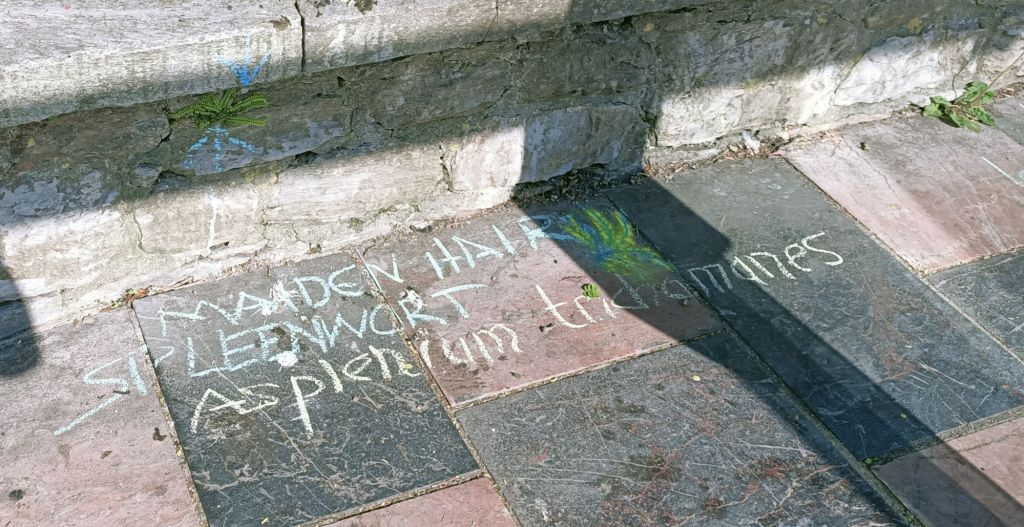 MAIDEN HAIR
SPLEENWORT
Asplenium trichomanes